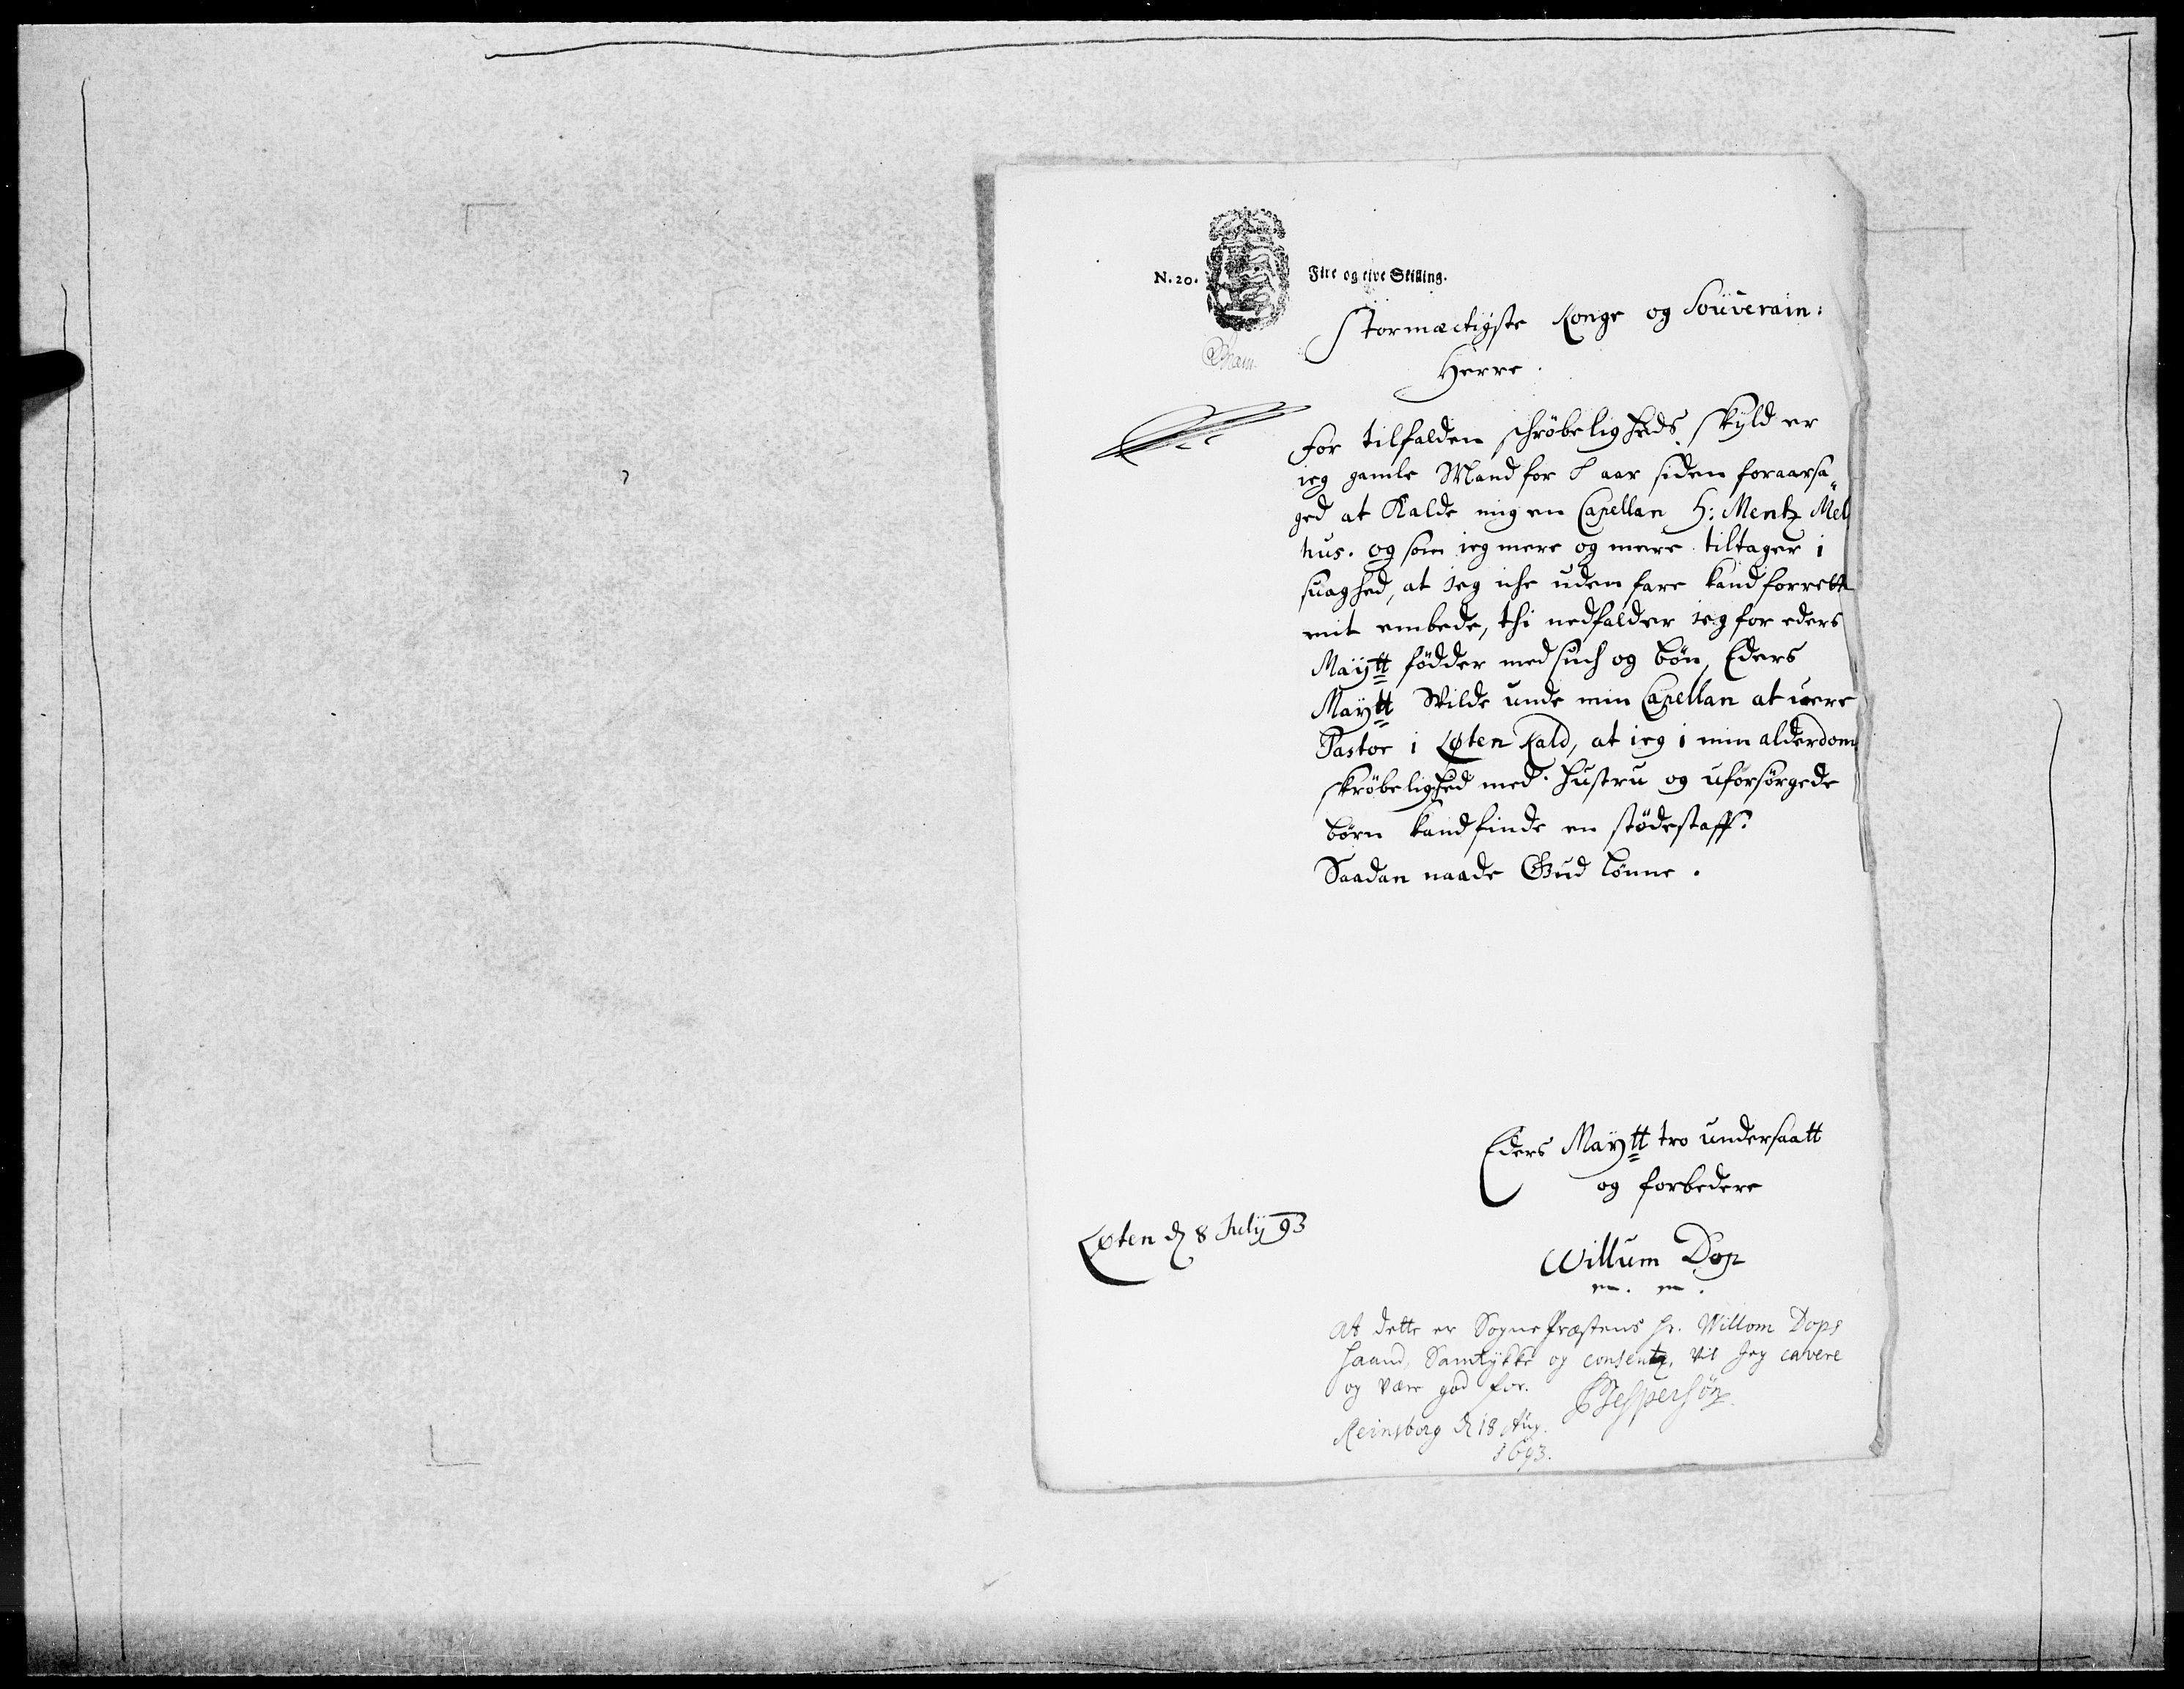 N. 20. Fire og tive Skilling.
Stormæctigste Konge og Souverain:
Herre.
For tilfalden schröbeligheds skyld er
ieg gamle Mand for aar siden foraarsa„
ged at Kalde mig en Capellan H: Mentz Mel
hus. og som ieg mere og mere tiltager i
suaghed, at ieg iche uden fare kand forrette
mit embede, thi nedfalder ieg for eders
Maÿtt födder med such og bön, Eders
Maÿtt Wilde unde min Capellan at uere
Pastor i Løten Kald, at ieg i min alderdom
skröbelighed med hustru og uforsörgede
börn kand finde en stödestaff.
Saadan naade Gud lönne.
Eders Maÿtt tro undersaatt
og forbedere
Løten d 8 Julij 93
Willum Dop
At dette er SognePræstens Hr. Willom Dops
haand, Samtÿkke og consentz, vil Jeg cavere
og være god for.
Jespersön
Reinsborg d 18 Aug.
1693.